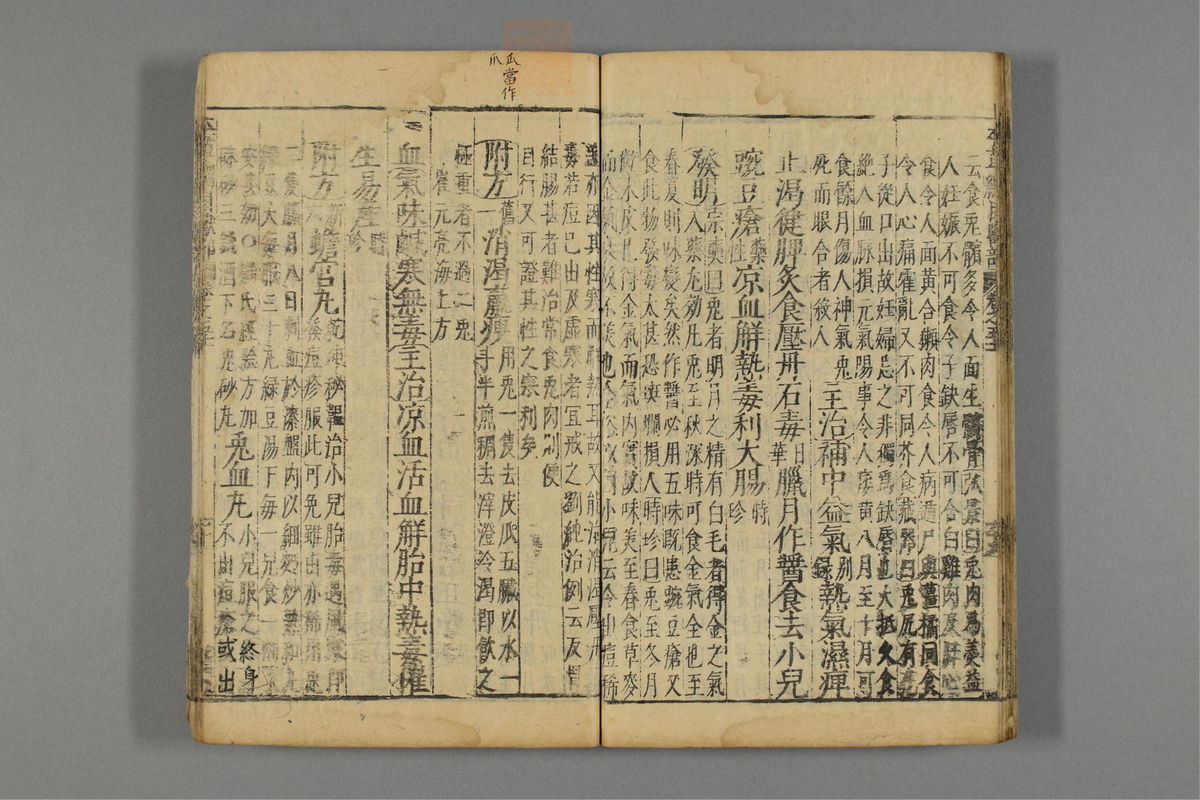 云食兔髓多令人面生髑骨弘景曰兔肉為羹益
人妊娠不可食令子缺唇不可合白雞肉及肝心
食令人面黃合獺肉食令人病遁尸與薑橘同食
令人心痛霍亂又不可同芥食藏器曰兔尻有孔
子從口出故妊婦忌之非獨為缺唇也大抵久食
絕人血脉損元氣陽事令人痿黃八月至十月可
食餘月傷人神氣兔
死而眼合者殺人
主治補中益氣別錄熱氣濕痺
止渴健脾炙食壓丹石毒日華臘月作醬食去小兒
豌豆瘡藥性凉血解熱毒利大腸時珍
發明宗奭曰兔者明月之精有白毛者得金之氣
入藥尤効凡兔至秋深時可食金氣全也至
春夏則味變矣然作醬必用五味既患豌豆瘡又
食此物發毒太甚恐斑爛損人時珍曰兔至冬月
齕木皮已得金氣而氣內實故味美至春食草麥
而金氣故不美也今小兒云令出痘稀
亦因其性寒而解熱耳故又能治消渴
毒若痘已出及虛寒者宜戒之劉純治例云反胃
結腸甚者難治常食兔肉則便
自行又可證其性之寒利矣
附方舊一消渴羸瘦用兔一隻去皮瓜五臟以水一
斗半煎稠去滓澄冷渴即飲之
極重者不過二兔
崔元亮海上方
血氣味鹹寒無毒主治凉血活血解胎中熱毒催
生易產時珍
附方新蟾宮丸乾坤秘韞治小兒胎毒遇風寒即
發痘疹服此可免雖出亦稀
二隻臘月八日刺血於漆盤內以細麪炒熟和
丸綠豆大每服三十丸綠豆湯下每一兒食一
安甚効〇楊氏經驗方加
硃砂三錢酒下名兔砂丸
兔血丸小兒服之終身
不出痘瘡或出
瓜當作
爪